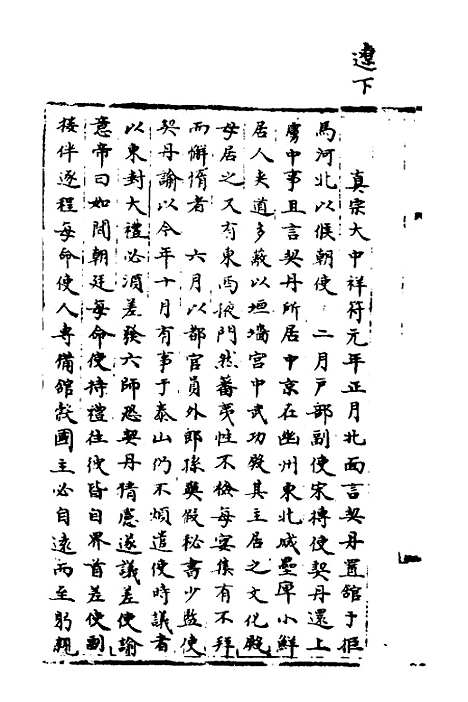 遼下
真宗大中祥符元年正月北面言契丹置舘于拒
馬河北以候朝使 二月戸部副使宋摶使契丹還上
虜中事且言契丹所居中京在幽州東北城壘庳小鮮
居人夹道多蔽以垣墻宫中武功殿其主居之文化殿
母居之又有東西掖門然蕃夷性不檢每宴集有不拜
而懈惰者 六月以都官員外郎孫奭假秘書少監使
契丹諭以今年十月有事于泰山仍不煩遣使時議者
以東封大禮必湏差發六師恐契丹情慮遂議差使諭
意帝曰如聞朝廷每命使持禮往彼皆自界首差使副
接伴逐程每命使人専備舘穀國主必自逺而至躬親